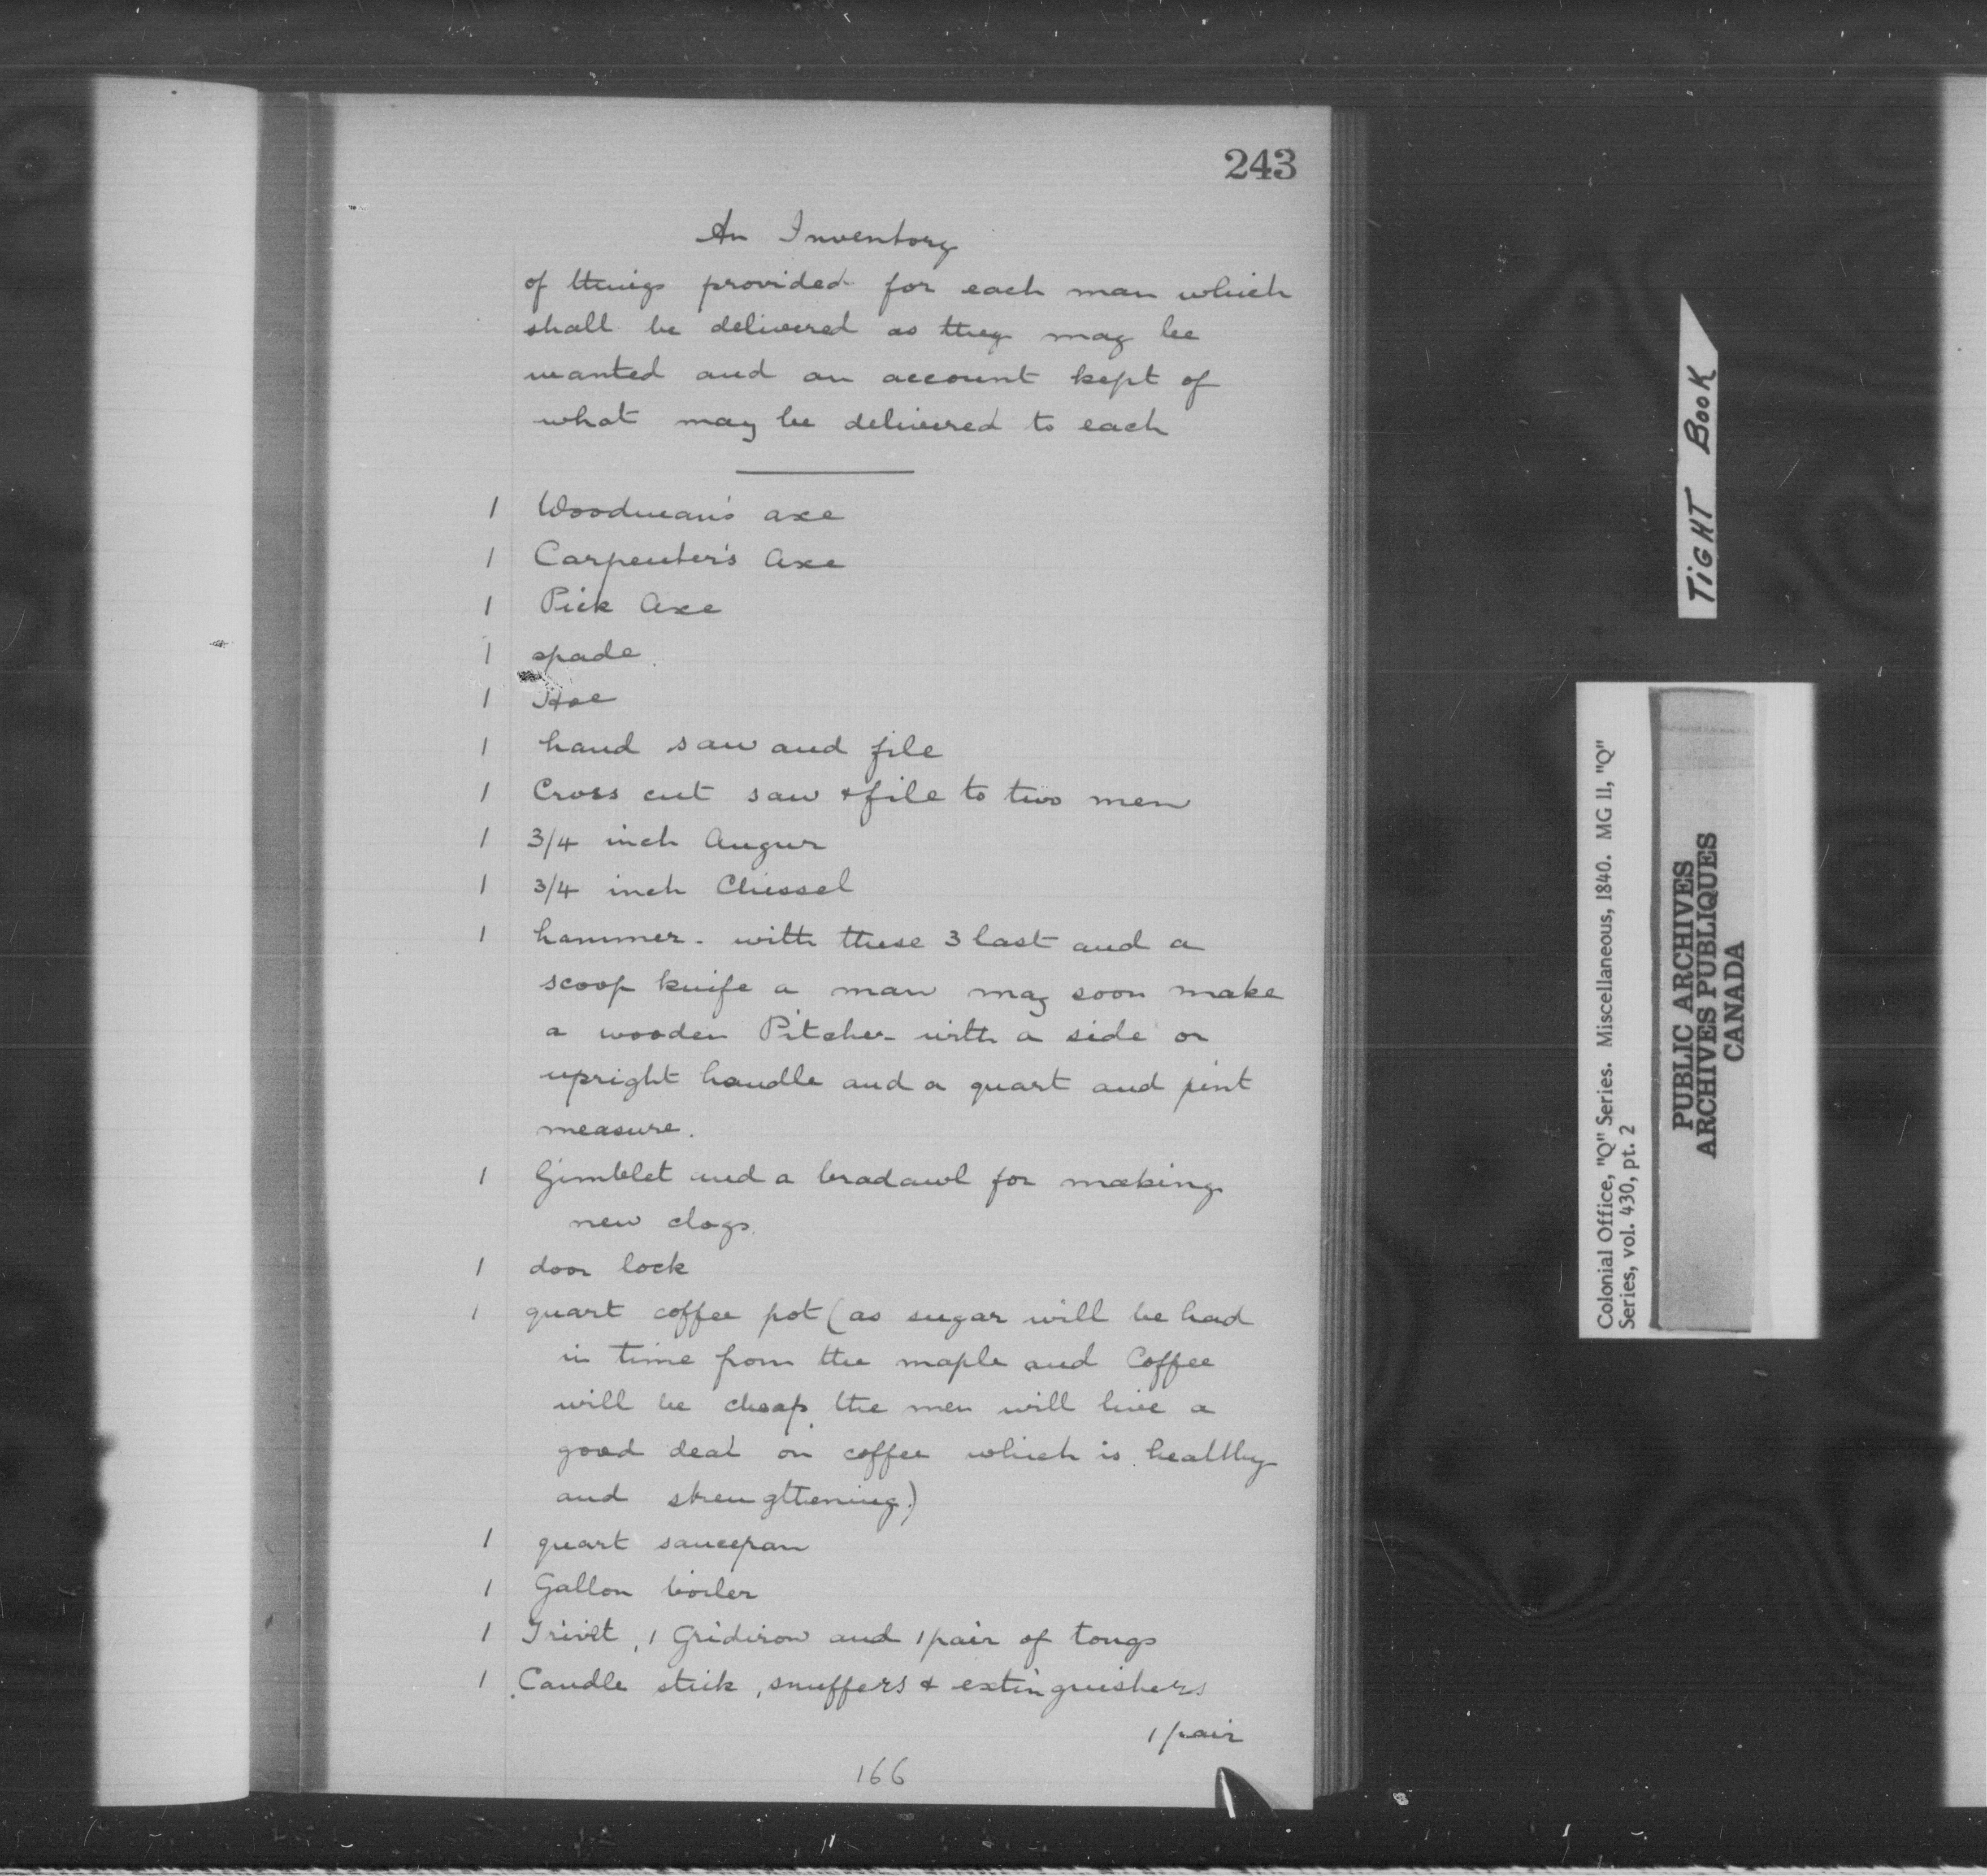 243
An Inventory
of things provided for each man which
shall be delivered as they may be
wanted and an account kept of
what may be delivered to each
1 Woodman's axe
1 Carpenter's Axe
1 Pick Axe
1 spade
1 Hoe
1 hand saw and file
1 Cross cut saw & file to two men
1 3/4 inch Augur
1 3/4 inch Chissel
1 hammer - with these 3 last and a
scoop knife a man may soon make
a wooden Pitcher with a side or
upright handle and a quart and pint
measure.
1 Gimblet and a bradawl for making
new clogs.
1 door lock
1 quart coffee pot (as sugar will be had
in time from the maple and Coffee
will be cheap, the men will live a
good deal on coffee which is healthy
and strengthening.)
1 quart saucepan
1 Gallon boiler
1 Trivet, 1 Gridiron and 1 pair of tongs
1 Candle stick, snuffers & extinguishers
1 pair
166
TIGHT BOOK
Colonial Office, "Q" Series. Miscellaneous, 1840. MG 11, "Q"
Series, vol. 430, pt. 2
PUBLIC ARCHIVES
ARCHIVES PUBLIQUES
CANADA